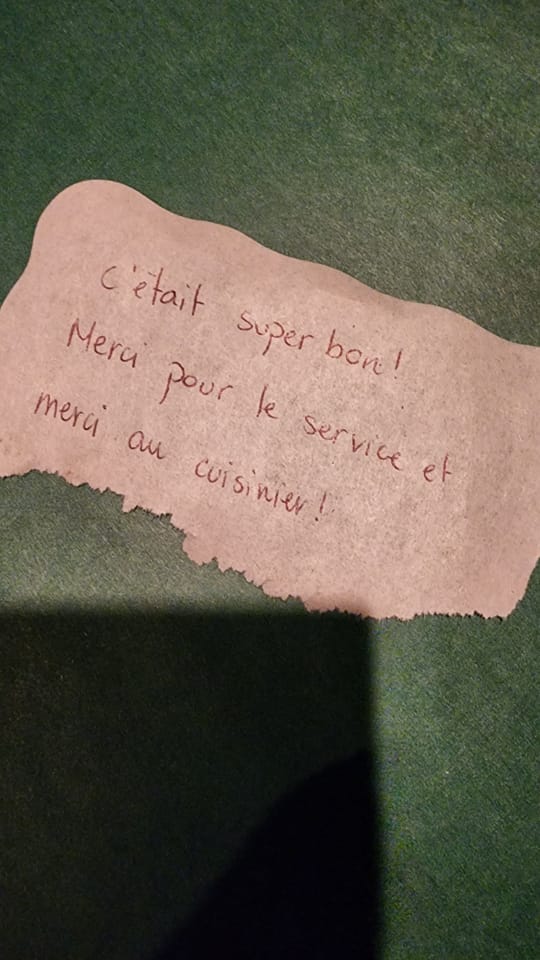 C'était super bon!
Merci pour le service et
merci au cuisinier!